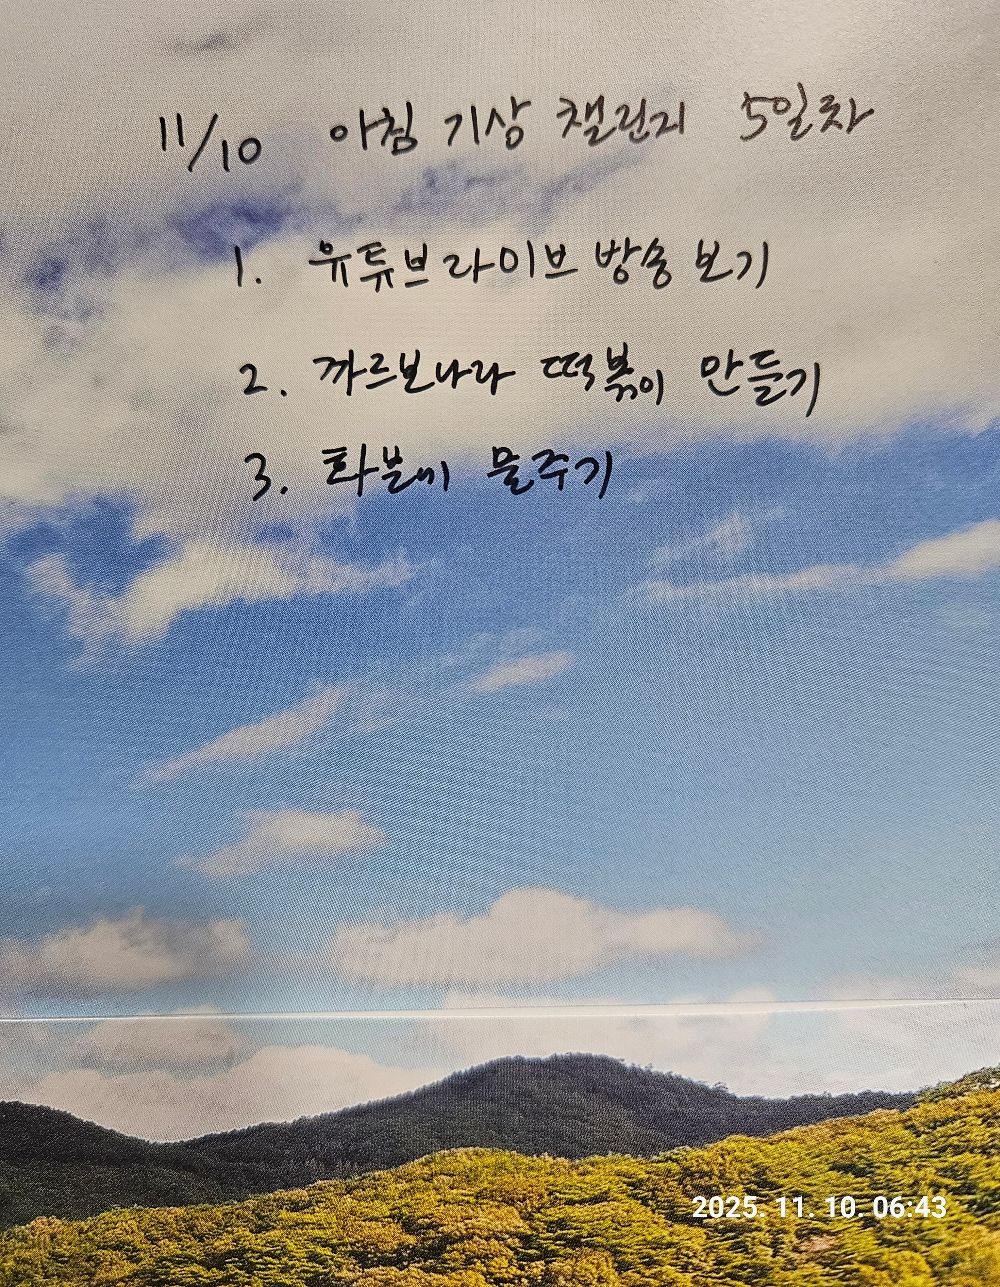 11/10 아침 기상 챌린지 5일차
1. 유튜브라이브 방송 보기
2. 까르보나라 떡볶이 만들기
3. 화분에 물주기
2025. 11. 10. 06:43